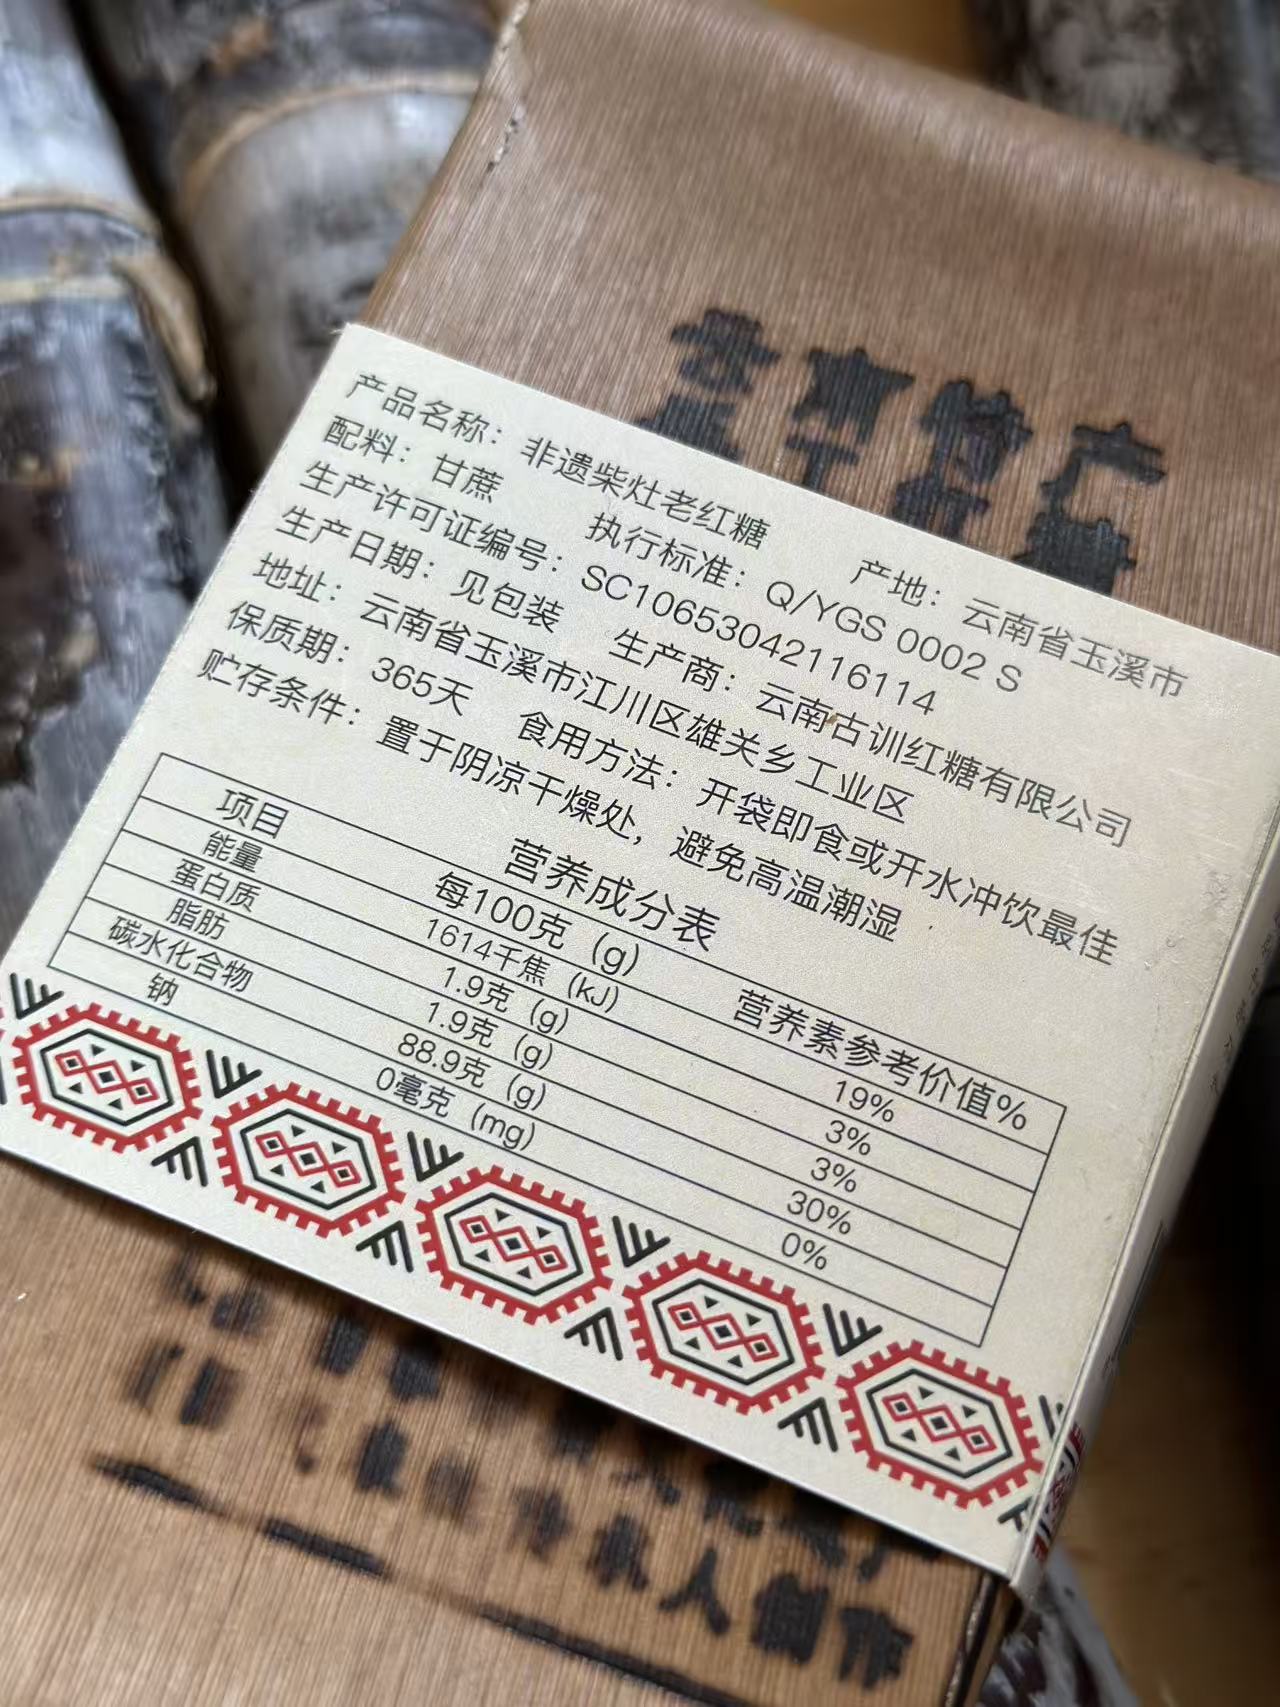 产品名称：非遗柴灶老红糖 产地：云南省玉溪市
配料：甘蔗 执行标准：Q/YGS 0002 S
生产许可证编号：SC10653042116114
生产日期：见包装 生产商：云南古训红糖有限公司
地址：云南省玉溪市江川区雄关乡工业区
保质期：365天 食用方法：开袋即食或开水冲饮最佳
贮存条件：置于阴凉干燥处，避免高温潮湿
营养成分表
项目 每100克（g） 营养素参考价值%
能量 1614千焦（kJ） 19%
蛋白质 1.9克（g） 3%
脂肪 1.9克（g） 3%
碳水化合物 88.9克（g） 30%
钠 0毫克（mg） 0%